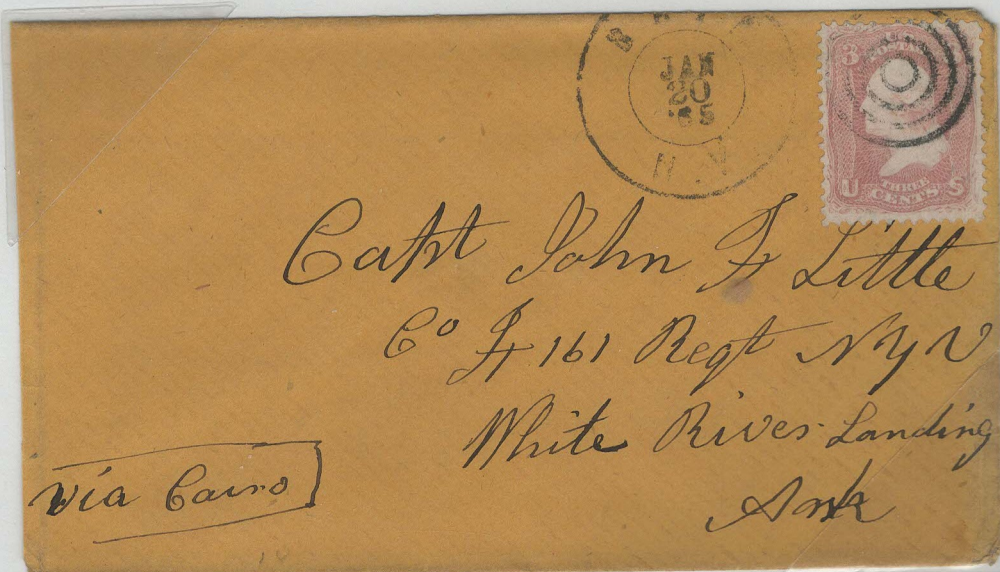 JAN
20
'65
N.Y.
3
U THREE CENTS S
Capt John F Little
Co F 161 Regt N Y V
White River Landing
Ark
via Cairo